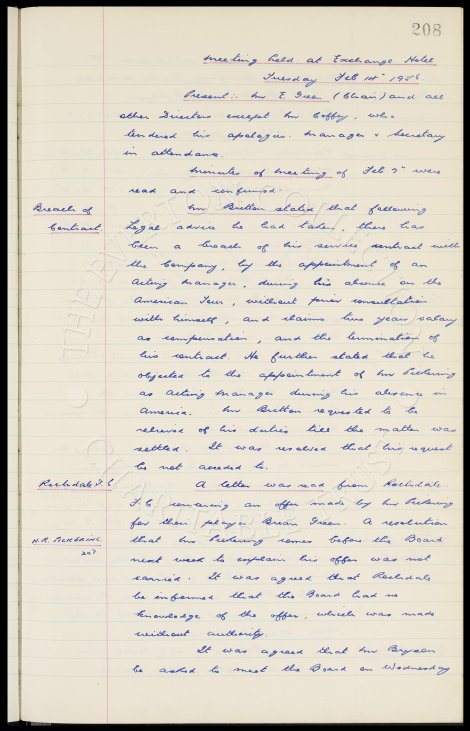 208
Meeting held at Exchange Hotel
Tuesday Feb 14th 1956.
Present:- Mr E. Green (Chair) and all
other Directors except Mr Coffey, who
tendered his apologies. Manager & Secretary
in attendance.
Minutes of meeting of Feb 7th were
read and confirmed.
Breach of
Contract.
Mr Britton stated that following
Legal advice he had taken, there has
been a breach of his service contract with
the Company, by the appointment of an
Acting Manager, during his absence on the
American Tour, without prior consultation
with himself, and claims two years salary
as compensation, and the termination of
his contract. He further stated that he
objected to the appointment of Mr Pickering
as Acting Manager during his absence in
America. Mr Britton requested to be
relieved of his duties till the matter was
settled. It was resolved that his request
be not acceded to.
Rochdale F.C.
A letter was read from Rochdale
F.C. concerning an offer made by Mr Pickering
for their player Brian Green. A resolution
H.R. PICKERING.
207
that Mr Pickering comes before the Board
next week to explain his offer was not
carried. It was agreed that Rochdale
be informed that the Board had no
knowledge of the offer, which was made
without authority.
It was agreed that Mr Bryson
be asked to meet the Board on Wednesday
THE EVERTON
CHARITABLE TRUST